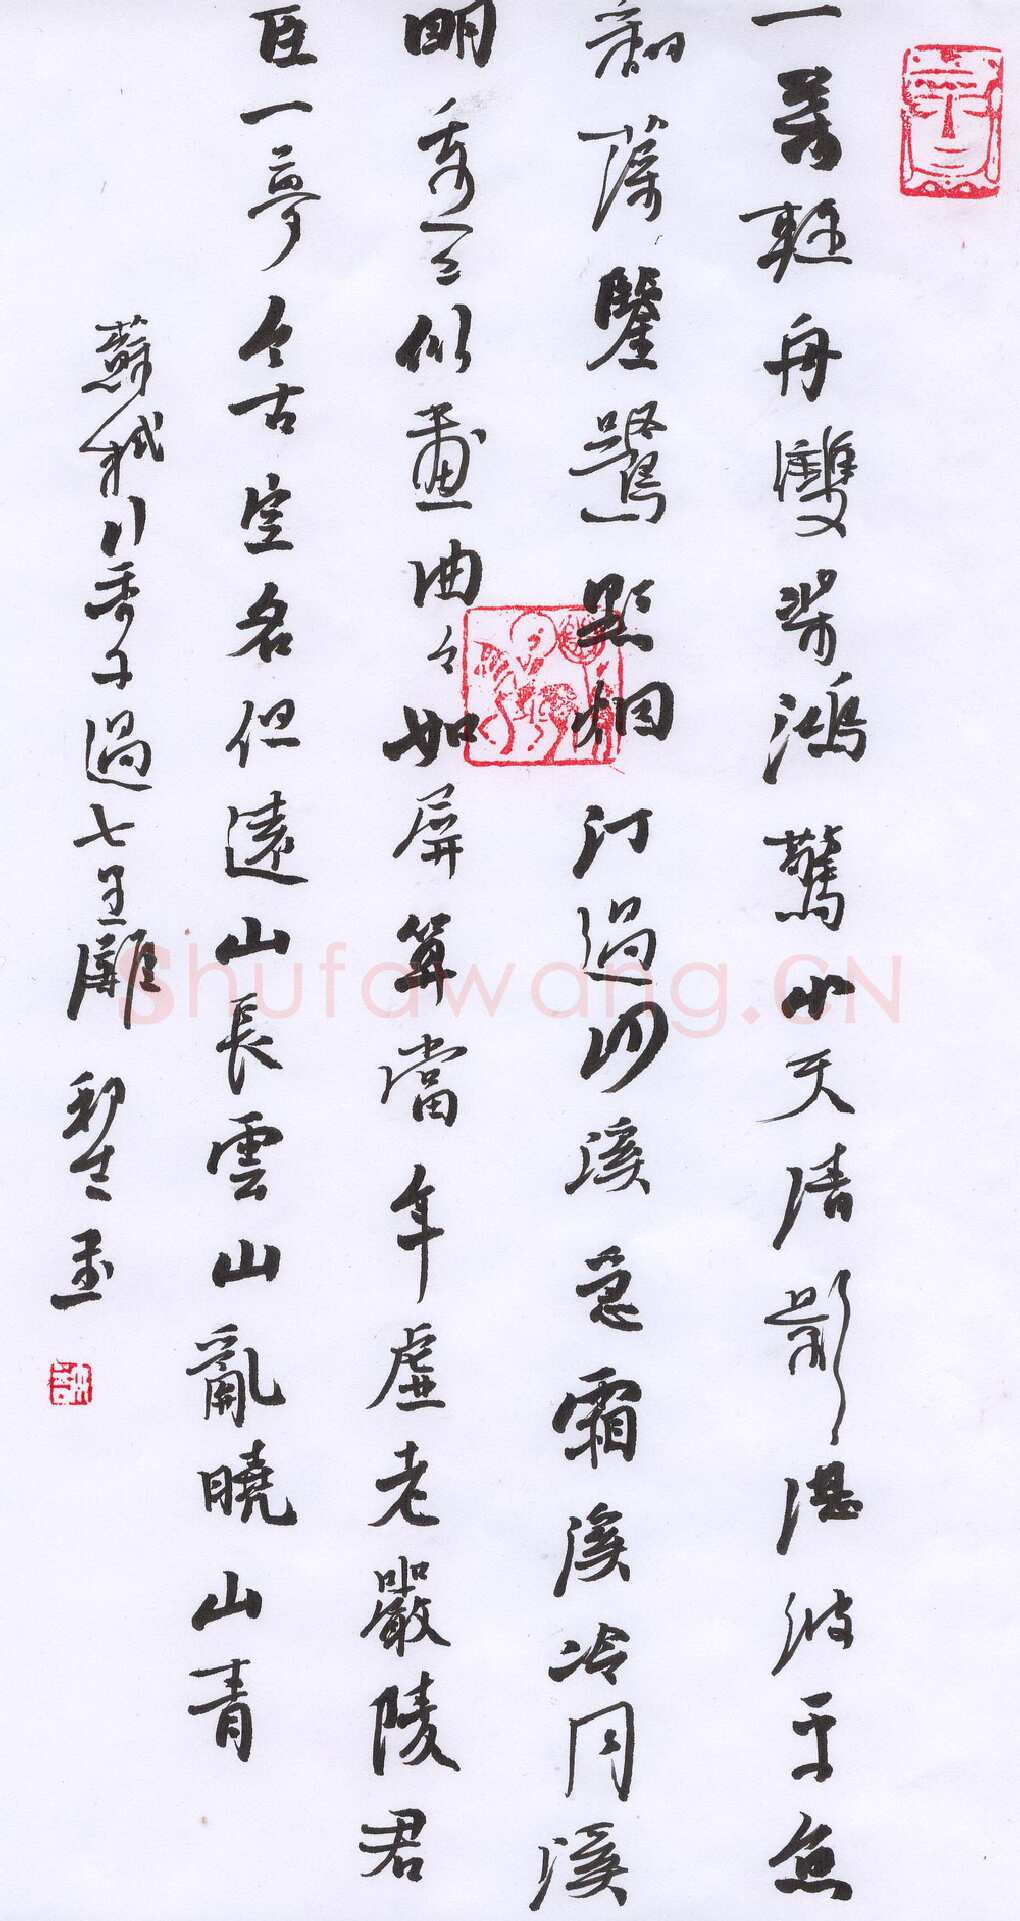 一葉輕舟雙槳鴻驚水天清影湛波平魚
翻藻鑒鷺點烟汀過沙溪急霜溪冷月溪
明重重似畫曲々如屏算當年虛老嚴陵君
臣一夢今古空名但遠山長雲山亂曉山青
蘇軾行香子過七里灘 利生書
Shufawang.CN